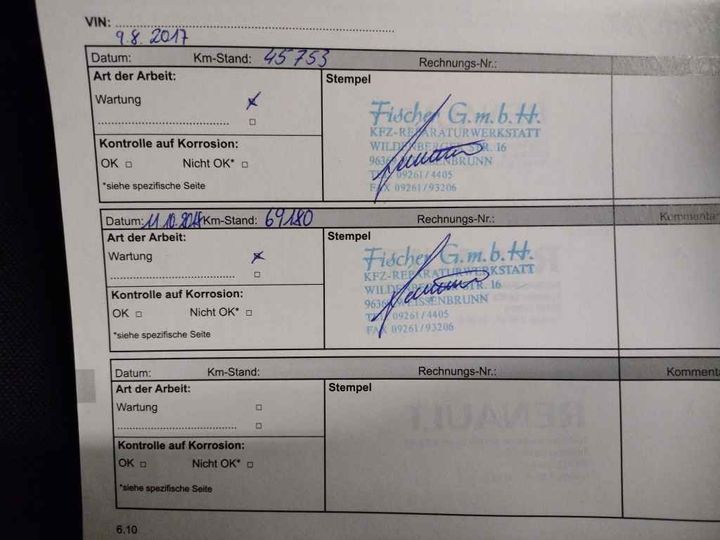 VIN:
9.8.2017
Datum: Km-Stand: 45753 Rechnungs-Nr.:
Art der Arbeit: Stempel
Wartung
Fischer G.m.b.H.
KFZ-REPARATURWERKSTATT
WILDENBERGER STR. 16
Kontrolle auf Korrosion:
OK Nicht OK*
TEL 09261/4405
FAX 09261/93206
*siehe spezifische Seite
Datum: 11.10. Km-Stand: 69180 Rechnungs-Nr.: Kommenta
Art der Arbeit: Stempel
Wartung
Fischer G.m.b.H.
KFZ-REPARATURWERKSTATT
WILDENBERGER STR. 16
Kontrolle auf Korrosion:
WEISSENBRUNN
OK Nicht OK*
TEL 09261/4405
FAX 09261/93206
*siehe spezifische Seite
Datum: Km-Stand: Rechnungs-Nr.: Kommenta
Art der Arbeit: Stempel
Wartung
RENAULT
Kontrolle auf Korrosion:
OK Nicht OK*
*siehe spezifische Seite
6.10